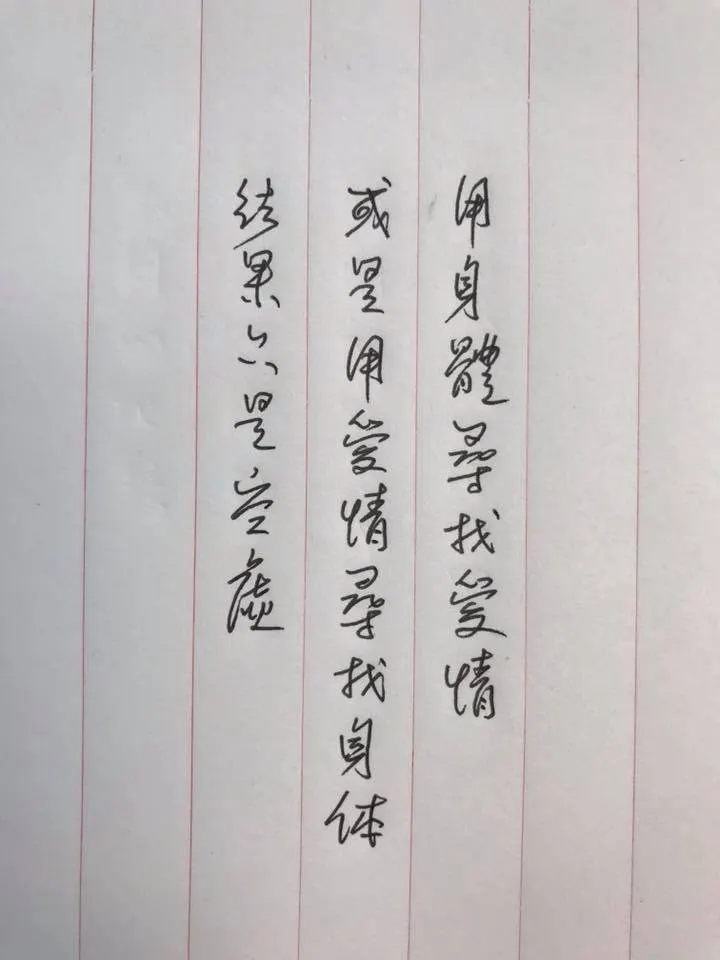 用身體尋找愛情
或是用愛情尋找身体
結果亦是空虛